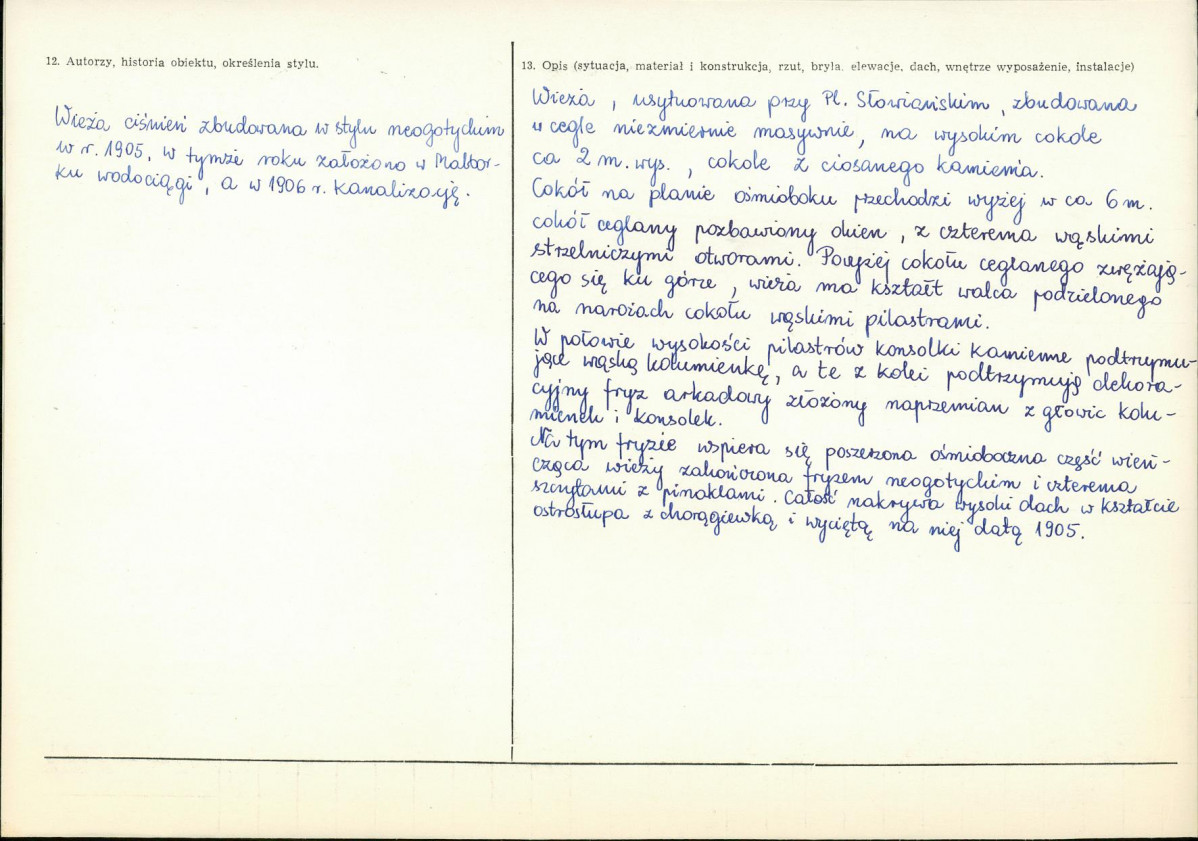 12. Autorzy, historia obiektu, określenia stylu.
Wieża ciśnień zbudowana w stylu neogotyckim
w r. 1905, w tymże roku założono w Malbor-
ku wodociągi, a w 1906 r. kanalizację.
13. Opis (sytuacja, materiał i konstrukcja, rzut, bryła, elewacje, dach, wnętrze wyposażenie, instalacje)
Wieża, usytuowana przy Pl. Słowiańskim, zbudowana
w cegle niezmiernie masywnie, na wysokim cokole
ca 2 m. wys., cokole z ciosanego kamienia.
Cokół na planie ośmioboku przechodzi wyżej w ca 6 m.
cokół ceglany pozbawiony okien, z czterema wąskimi
strzelniczymi otworami. Powyżej cokołu ceglanego zwężają-
cego się ku górze, wieża ma kształt walca podzielonego
na narożach cokołu wąskimi pilastrami.
W połowie wysokości pilastrów konsolki kamienne podtrzymu-
jące wąską kolumienkę, a te z kolei podtrzymują dekora-
cyjny fryz arkadowy złożony naprzemian z głowic kolu-
mienek i konsolek.
Na tym fryzie wspiera się poszerzona ośmioboczna część wień-
cząca wieży zakończona fryzem neogotyckim i czterema
szczytami z pinaklami. Całość nakrywa wysoki dach w kształcie
ostrosłupa z chorągiewką i wyciętą na niej datą 1905.